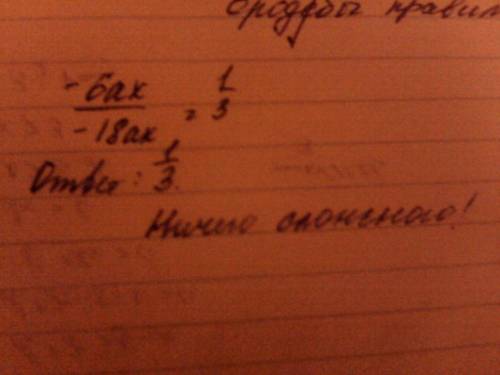 дроби правил
-6ax / -18ax = 1/3
Ответ: 1/3.
Ничего сложного!